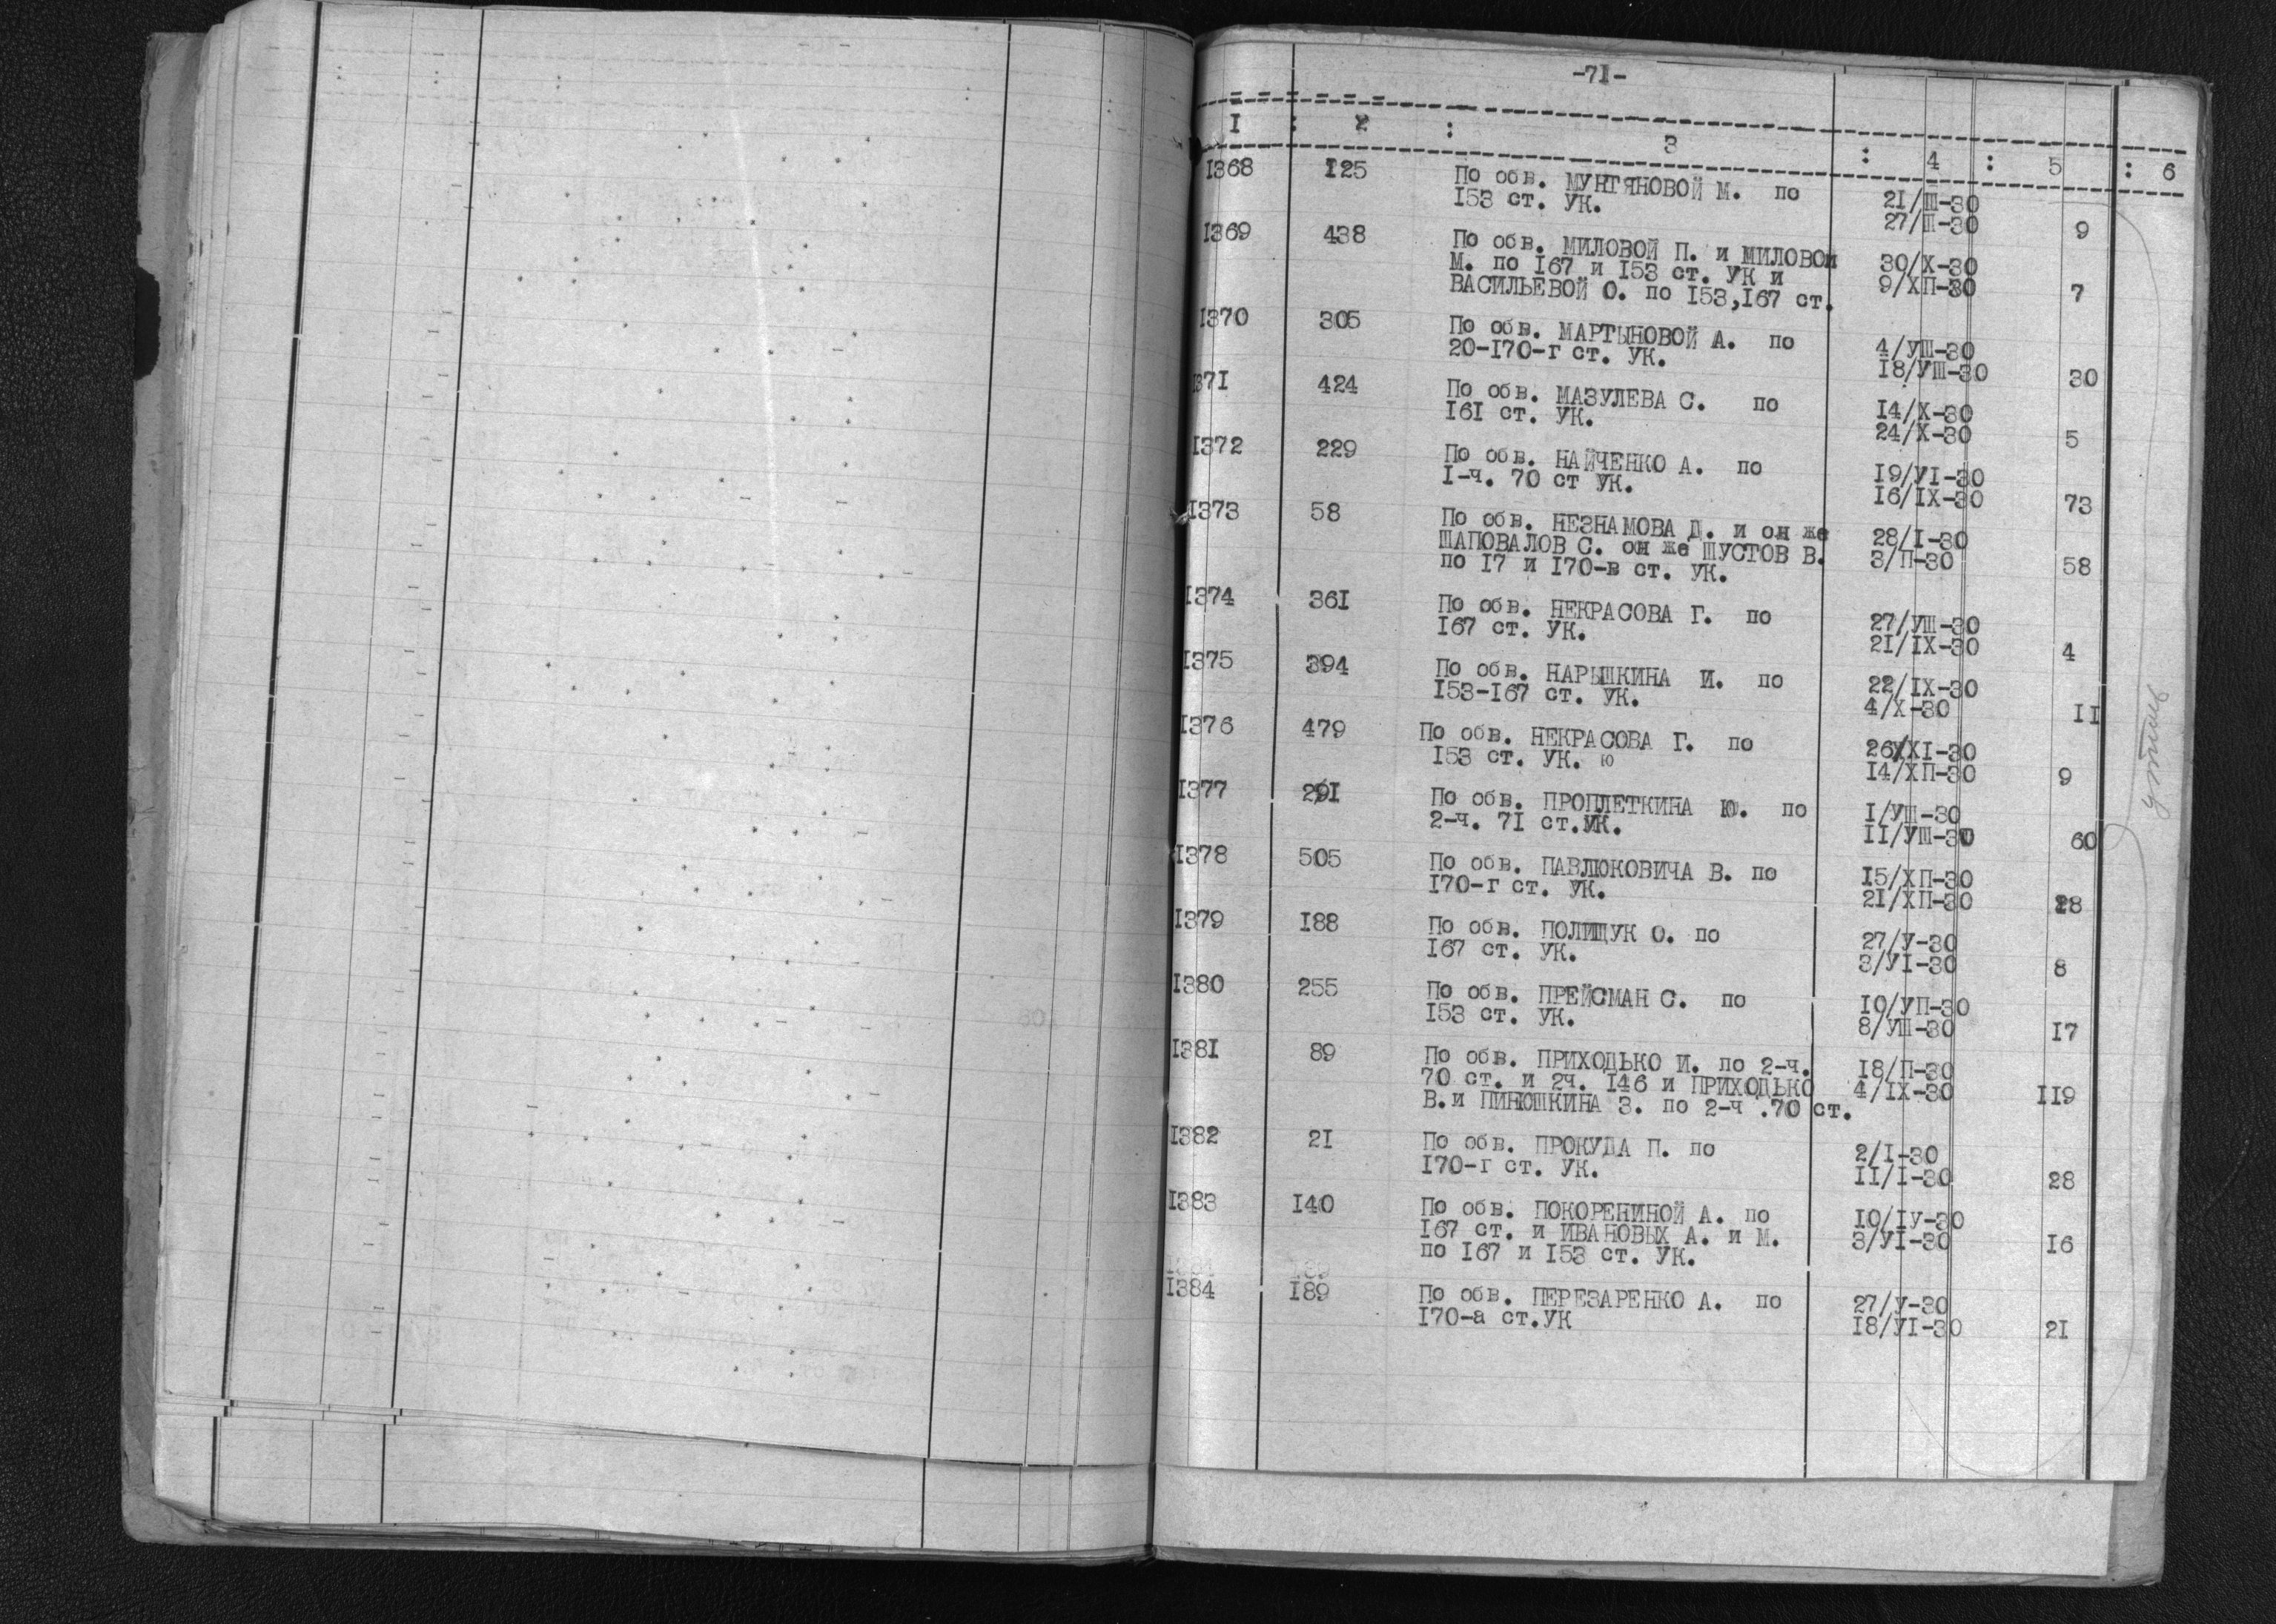 -71-
I : 2 : 3 : 4 : 5 : 6
I368 I25 По обв. МУНТЯНОВОЙ М. по 2I/Ш-30
I53 ст. УК. 27/Ш-30 9
I369 438 По обв. МИЛОВОЙ П. и МИЛОВОЙ 30/Х-30
М. по I67 и I53 ст. УК и 9/ХП-30 7
ВАСИЛЬЕВОЙ О. по I53,I67 ст.
I370 305 По обв. МАРТЫНОВОЙ А. по 4/УШ-30
20-I70-г ст. УК. I8/УШ-30 30
I37I 424 По обв. МАЗУЛЕВА С. по I4/Х-30
I6I ст. УК. 24/Х-30 5
I372 229 По обв. НАЙЧЕНКО А. по I9/УI-30
I-ч. 70 ст УК. I6/IХ-30 73
I373 58 По обв. НЕЗНАМОВА Д. и он же 28/I-30
ШАПОВАЛОВ С. он же ШУСТОВ В. 3/П-30 58
по I7 и I70-в ст. УК.
I374 36I По обв. НЕКРАСОВА Г. по 27/УШ-30
I67 ст. УК. 2I/IХ-30 4
I375 394 По обв. НАРЫШКИНА И. по 22/IХ-30
I53-I67 ст. УК. 4/Х-30 II
I376 479 По обв. НЕКРАСОВА Г. по 26/ХI-30
I53 ст. УК. ю I4/ХП-30 9
I377 29I По обв. ПРОПЛЕТКИНА Ю. по I/УШ-30
2-ч. 7I ст.УК. II/УШ-30 60
I378 505 По обв. ПАВЛЮКОВИЧА В. по I5/ХП-30
I70-г ст. УК. 2I/ХП-30
I379 I88 По обв. ПОЛИЩУК О. по 27/У-30
I67 ст. УК. 3/УI-30 8
I380 255 По обв. ПРЕЙСМАН С. по I0/УП-30
I53 ст. УК. 8/УШ-30 I7
I38I 89 По обв. ПРИХОДЬКО И. по 2-ч. I8/П-30
70 ст. и 2ч. I46 и ПРИХОДЬКО 4/IХ-30 II9
В.и ПИНЮШКИНА З. по 2-ч .70 ст.
I382 2I По обв. ПРОКУДА П. по 2/I-30
I70-г ст. УК. II/I-30 28
I383 I40 По обв. ПОКОРЕНИНОЙ А. по I0/IУ-30
I67 ст. и ИВАНОВЫХ А. и М. 3/УI-30 I6
по I67 и I53 ст. УК.
I384 I89 По обв. ПЕРЕЗАРЕНКО А. по 27/У-30
I70-а ст.УК I8/УI-30 2I